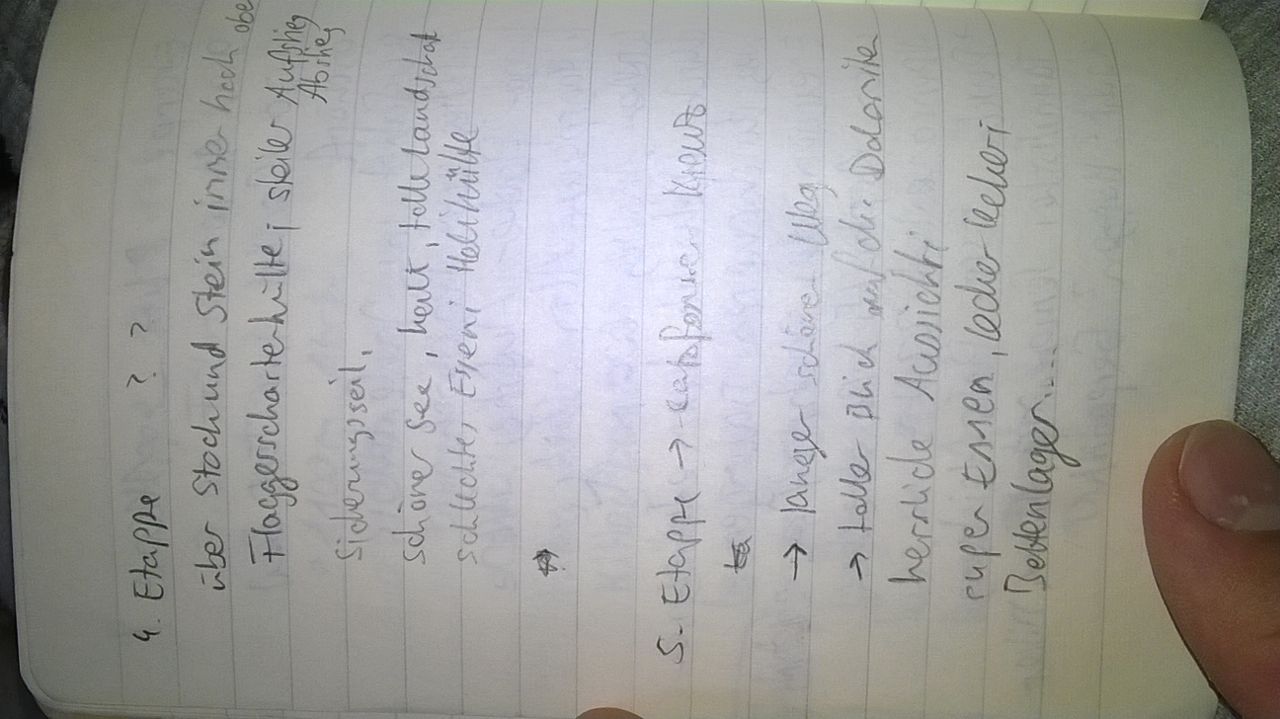 4. Etappe ? ?
über Stock und Stein immer hoch oben
Flaggerschartenhütte; steiler Aufstieg
Abstieg
Sicherungsseil,
schöner See, kalt, tolle Landschaft
schlechtes Essen; Helihütte
5. Etappe → Kreuz
→ langer schöner Weg
→ toller Blick auf die Dolomiten
herrliche Aussicht;
super Essen, lecker lecker;
Bettenlager....